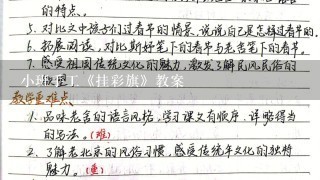 的特点。
5. 对比文中孩子们过春节的情景，说说自己是怎样过春节的。
6. 拓展阅读，对比斯妤笔下的春节与老舍笔下的春节。
7. 感受祖国传统文化的魅力，激发了解民风民俗的
小班手工《挂彩旗》教案
教学重难点
1. 品味老舍的语言风格，学习课文有顺序、详略得当
的写法。（难）
2. 了解老北京的风俗习惯，感受传统年文化的独特
魅力。（重）